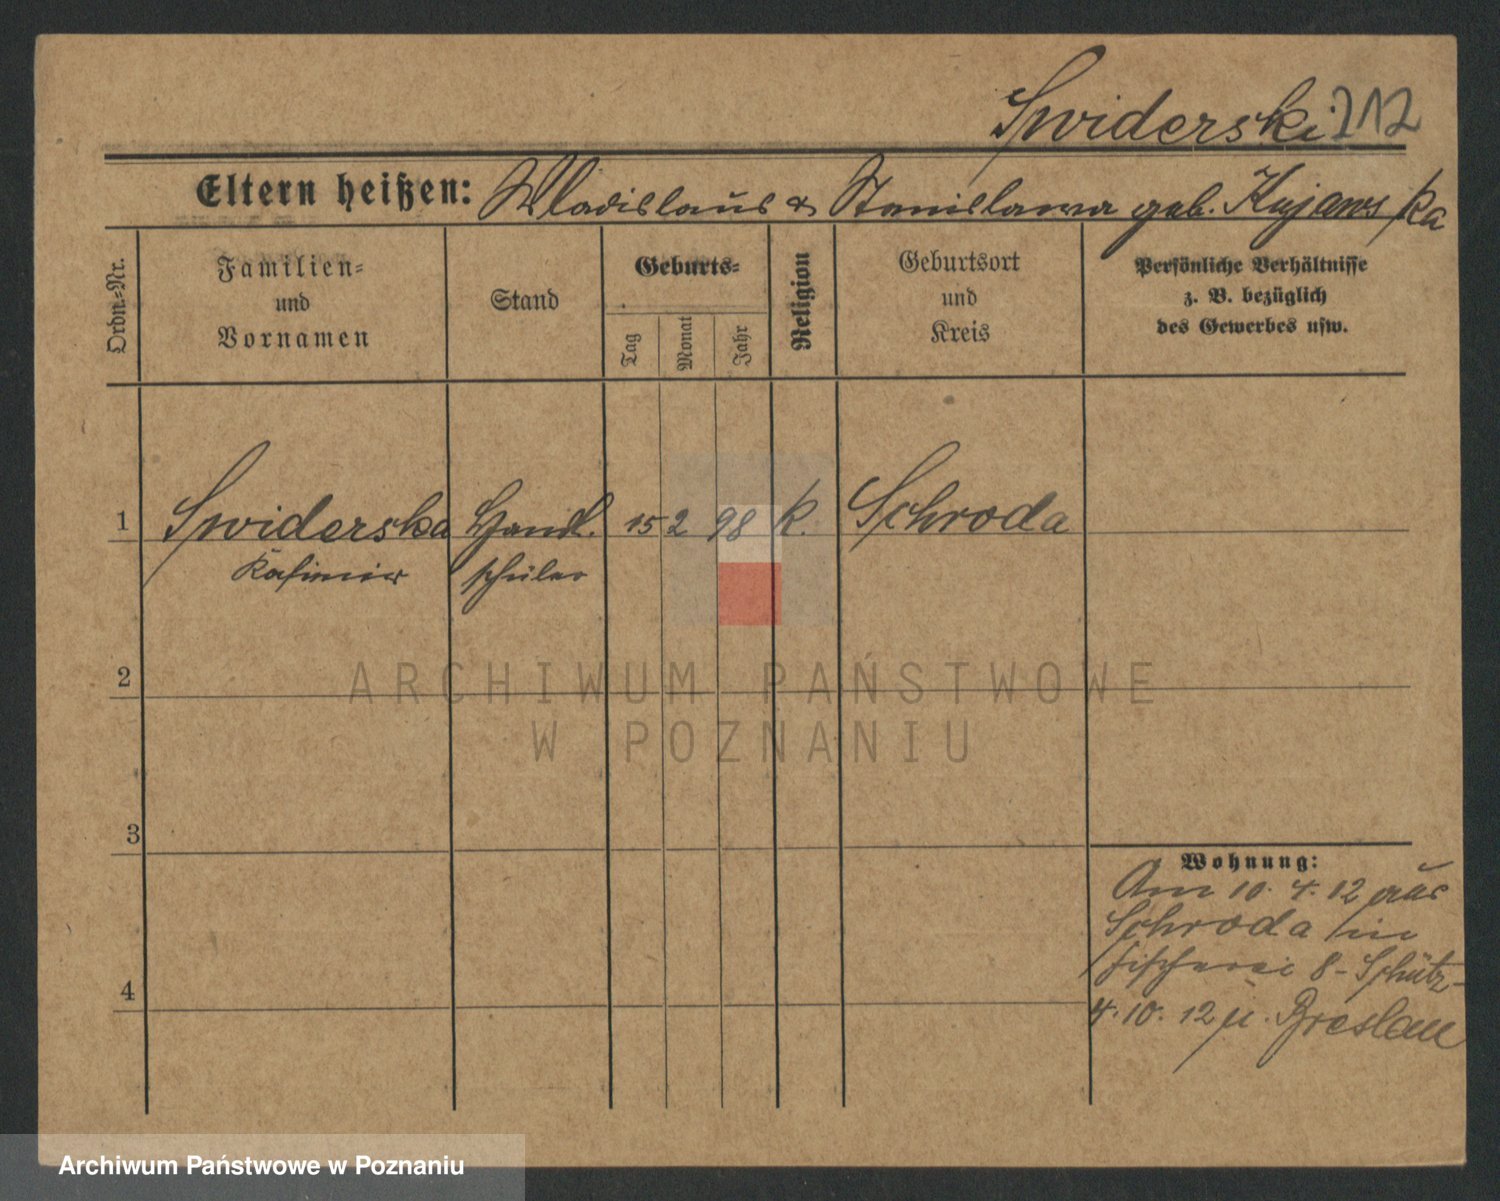 Swiderski 212
Eltern heißen: Wladislaus & Stanislawa geb. Kujawska
Ordn.-Nr.
Familien-
und
Vornamen
Stand
Geburts-
Tag
Monat
Jahr
Religion
Geburtsort
und
Kreis
Persönliche Verhältnisse
z. B. bezüglich
des Gewerbes usw.
1 Swiderska Handl. 15 2 98 k. Schroda
Kasimir schüler
2
3
4
Wohnung:
Am 10. 4. 12 aus
Schroda in
Fischerei 8 - Schütz-
4. 10. 12 u. Breslau
ARCHIWUM PAŃSTWOWE
W POZNANIU
Archiwum Państwowe w Poznaniu